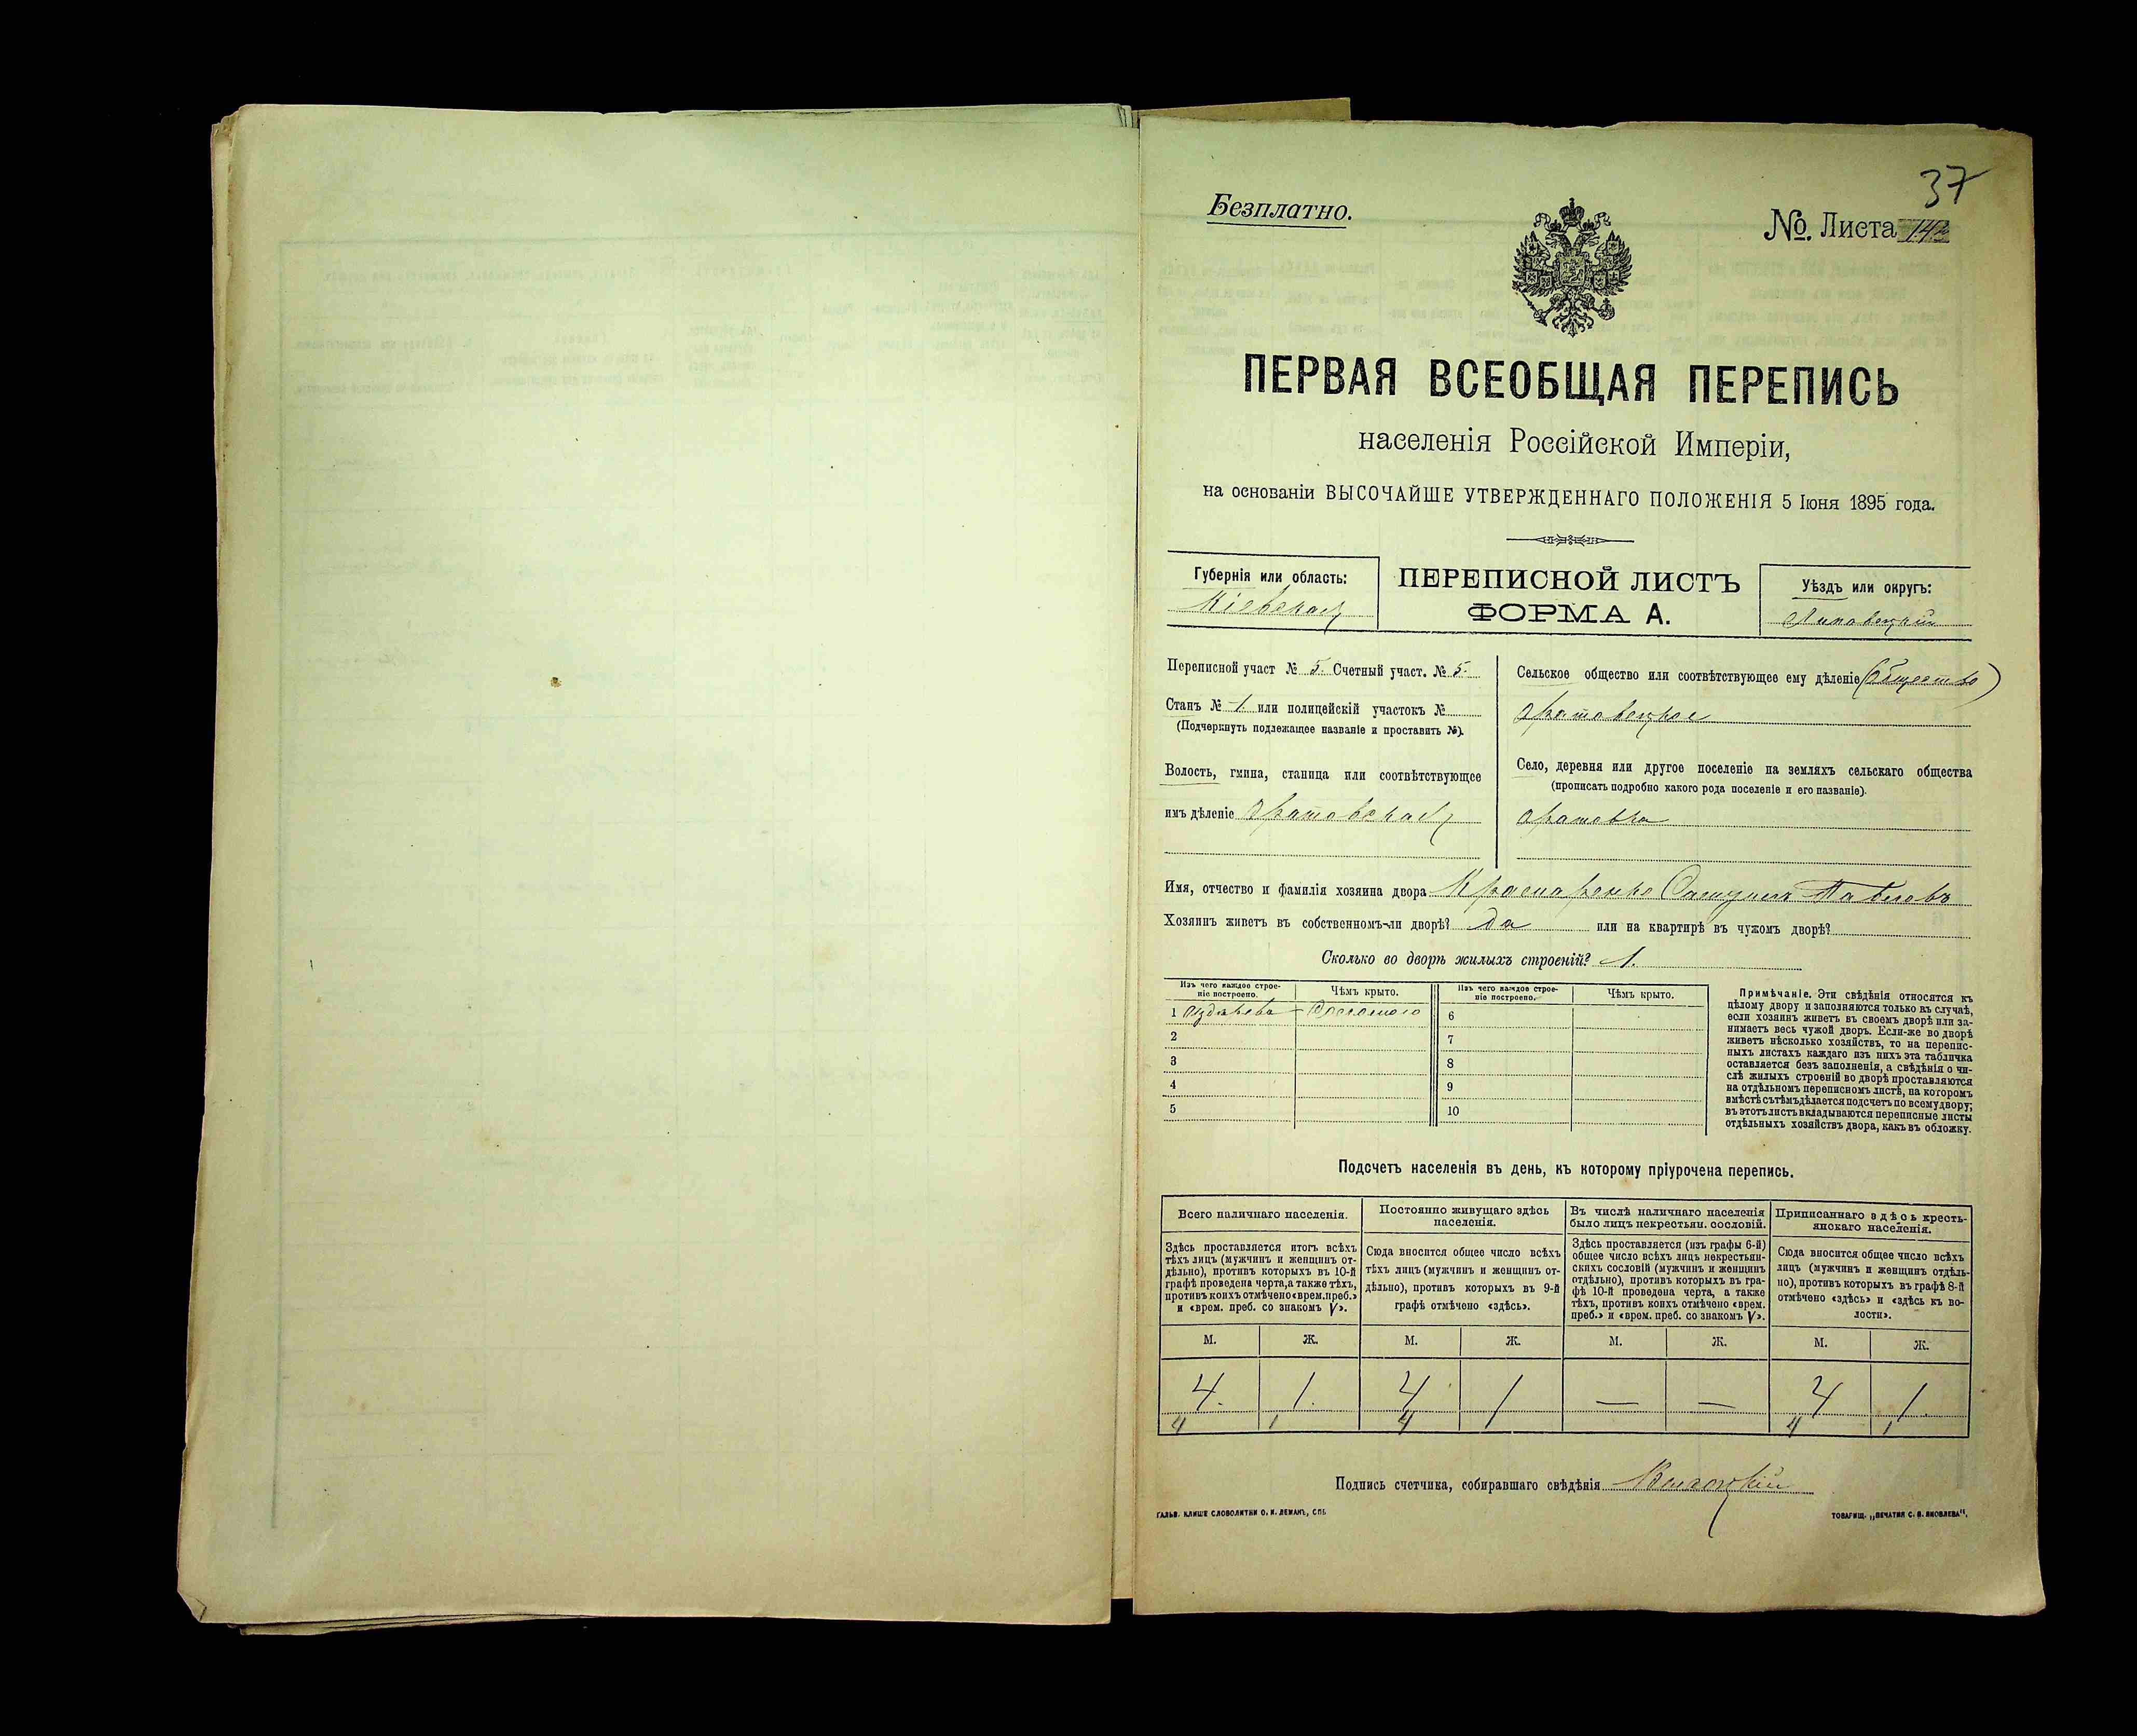 37
Безплатно.
№. Листа 142
ПЕРВАЯ ВСЕОБЩАЯ ПЕРЕПИСЬ
населенія Россійской Имперіи,
на основаніи ВЫСОЧАЙШЕ УТВЕРЖДЕННАГО ПОЛОЖЕНІЯ 5 Іюня 1895 года.
Губернія или область:
Кіевская
ПЕРЕПИСНОЙ ЛИСТЪ
ФОРМА А.
Уѣздъ или округъ:
Липовецкій
Переписной участ № 5. Счетный участ. № 5.
Станъ № 1. или полицейскій участокъ №
(Подчеркнуть подлежащее названіе и проставить №).
Волость, гмина, станица или соотвѣтствующее
имъ дѣленіе
Сельское общество или соотвѣтствующее ему дѣленіе (Общество)
Село, деревня или другое поселеніе на земляхъ сельскаго общества
(прописать подробно какого рода поселеніе и его названіе).
Имя, отчество и фамилія хозяина двора Павловъ
Хозяинъ живетъ въ собственномъ-ли дворѣ? Да или на квартирѣ въ чужомъ дворѣ?
Сколько во дворѣ жилыхъ строеній? 1.
Изъ чего каждое строе-
ніе построено.
Чѣмъ крыто.
Изъ чего каждое строе-
ніе построено.
Чѣмъ крыто.
1 издерева Соломою
2
3
4
5
6
7
8
9
10
Примѣчаніе. Эти свѣдѣнія относятся къ
цѣлому двору и заполняются только въ случаѣ,
если хозяинъ живетъ въ своемъ дворѣ или за-
нимаетъ весь чужой дворъ. Если-же во дворѣ
живетъ нѣсколько хозяйствъ, то на перепис-
ныхъ листахъ каждаго изъ нихъ эта табличка
оставляется безъ заполненія, а свѣдѣнія о чи-
слѣ жилыхъ строеній во дворѣ проставляются
на отдѣльномъ переписномъ листѣ, на которомъ
вмѣстѣ сътѣмъ дѣлается подсчетъ по всему двору;
въ этотъ листъ вкладываются переписные листы
отдѣльныхъ хозяйствъ двора, какъ въ обложку.
Подсчетъ населенія въ день, къ которому пріурочена перепись.
Всего наличнаго населенія.
Здѣсь проставляется итогъ всѣхъ
тѣхъ лицъ (мужчинъ и женщинъ от-
дѣльно), противъ которыхъ въ 10-й
графѣ проведена черта, а также тѣхъ,
противъ коихъ отмѣчено «врем. преб.»
и «врем. преб. со знакомъ V».
Постоянно живущаго здѣсь
населенія.
Сюда вносится общее число всѣхъ
тѣхъ лицъ (мужчинъ и женщинъ от-
дѣльно), противъ которыхъ въ 9-й
графѣ отмѣчено «здѣсь».
Въ числѣ наличнаго населенія
было лицъ некрестьян. сословій.
Здѣсь проставляется (изъ графы 6-й)
общее число всѣхъ лицъ некрестьян-
скихъ сословій (мужчинъ и женщинъ
отдѣльно), противъ которыхъ въ гра-
фѣ 10-й проведена черта, а также
тѣхъ, противъ коихъ отмѣчено «врем.
преб.» и «врем. преб. со знакомъ V».
Приписаннаго здѣсь кресть-
янскаго населенія.
Сюда вносится общее число всѣхъ
лицъ (мужчинъ и женщинъ отдѣль-
но), противъ которыхъ въ графѣ 8-й
отмѣчено «здѣсь» и «здѣсь къ во-
лости».
М. Ж. М. Ж. М. Ж. М. Ж.
4. 1. 4 1 — — 4 1
4 1 4 4 1
Подпись счетчика, собиравшаго свѣдѣнія
ГАЛЬВ. КЛИШЕ СЛОВОЛИТНИ О. И. ЛЕМАНЪ, СПБ.
ТОВАРИЩ. „ПЕЧАТНЯ С. П. ЯКОВЛЕВА".